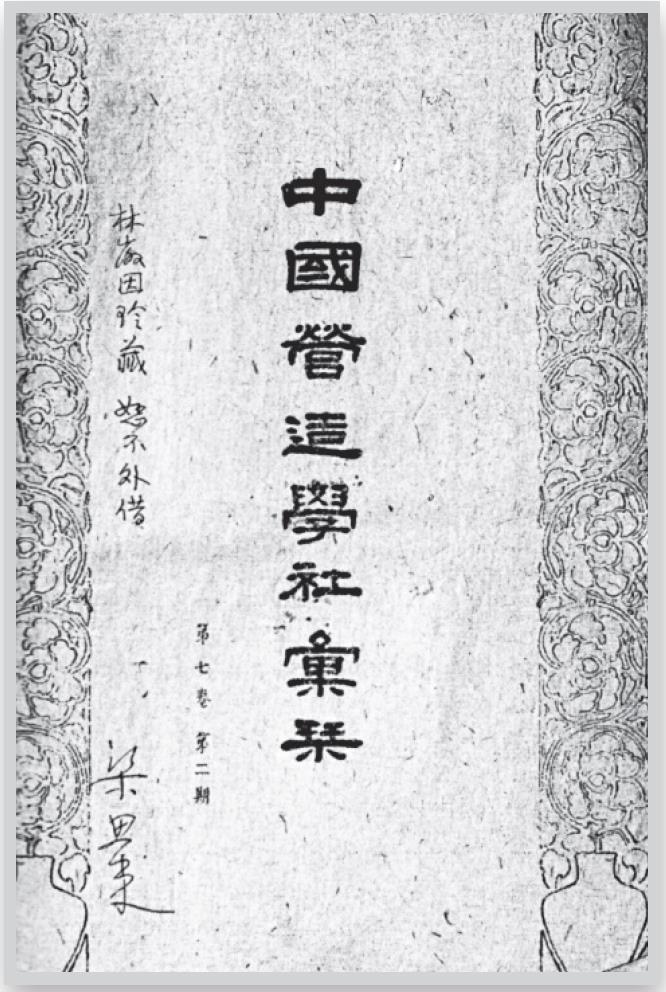 中國營造學社彙栞
第七卷 第二期
林徽因珍藏 恕不外借
梁